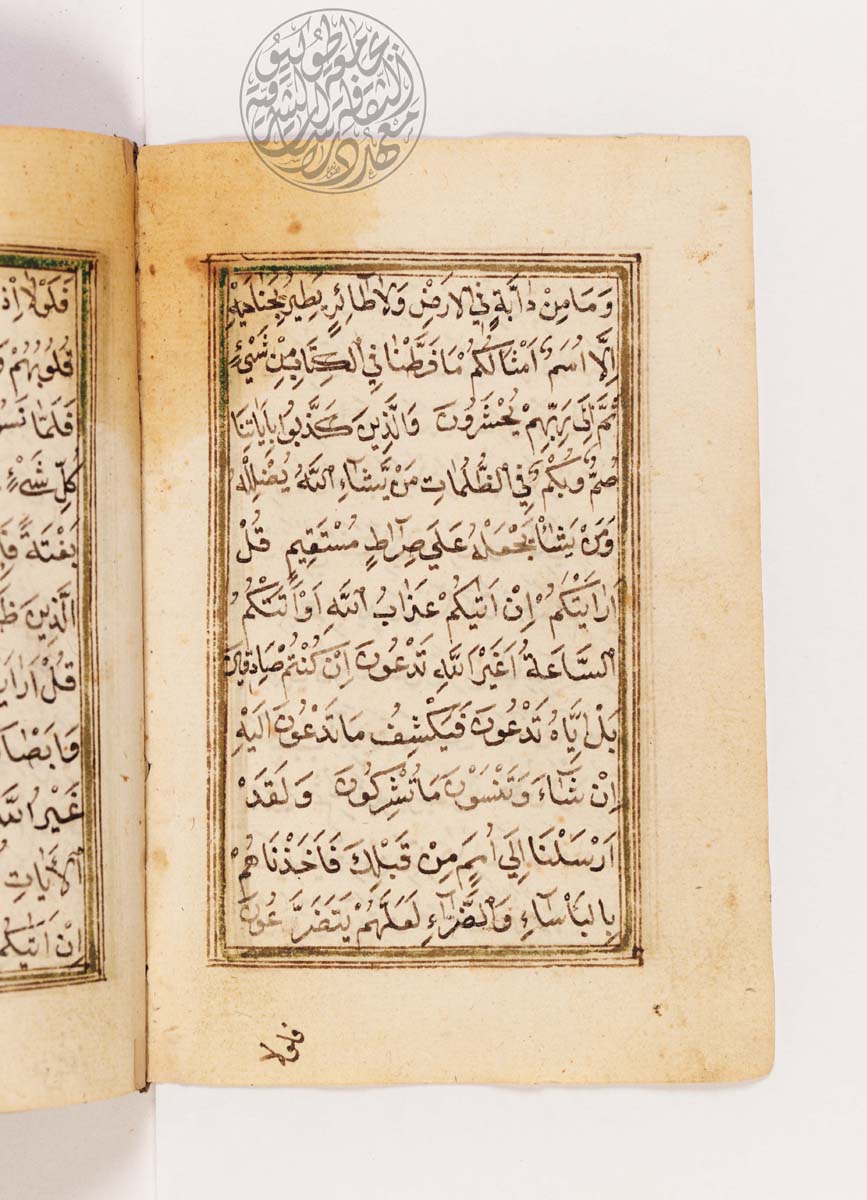 وَمَا مِنْ دَابَّةٍ فِي الْاَرْضِ وَلَا طَائِرٍ يَطِيرُ بِجَنَاحَيْهِ
اِلَّا اُمَمٌ اَمْثَالُكُمْ مَا فَرَّطْنَا فِي الْكِتَابِ مِنْ شَيْءٍ
ثُمَّ اِلَى رَبِّهِمْ يُحْشَرُونَ وَالَّذِينَ كَذَّبُوا بِاٰيَاتِنَا
صُمٌّ وَبُكْمٌ فِي الظُّلُمَاتِ مَنْ يَشَاءِ اللّٰهُ يُضْلِلْهُ
وَمَنْ يَشَاْ يَجْعَلْهُ عَلَي صِرَاطٍ مُسْتَقِيمٍ قُلْ
اَرَاَيْتَكُمْ اِنْ اَتٰيكُمْ عَذَابُ اللّٰهِ اَوْ اَتَتْكُمُ
السَّاعَةُ اَغَيْرَ اللّٰهِ تَدْعُونَ اِنْ كُنْتُمْ صَادِقِينَ
بَلْ اِيَّاهُ تَدْعُونَ فَيَكْشِفُ مَا تَدْعُونَ اِلَيْهِ
اِنْ شَاءَ وَتَنْسَوْنَ مَا تُشْرِكُونَ وَلَقَدْ
اَرْسَلْنَا اِلَي اُمَمٍ مِنْ قَبْلِكَ فَاَخَذْنَاهُمْ
بِالْبَاْسَاءِ وَالضَّرَّاءِ لَعَلَّهُمْ يَتَضَرَّعُونَ
فلولا
فَلَوْلَا اِذْ
قُلُوبُهُمْ
فَلَمَّا نَسُو
كُلِّ شَيْءٍ
بَغْتَةً
الَّذِينَ
قُلْ اَرَاَيْ
وَاَبْصَا
غَيْرُ اللّٰهِ
الْاٰيَاتِ
اِنْ اَتٰيكُمْ